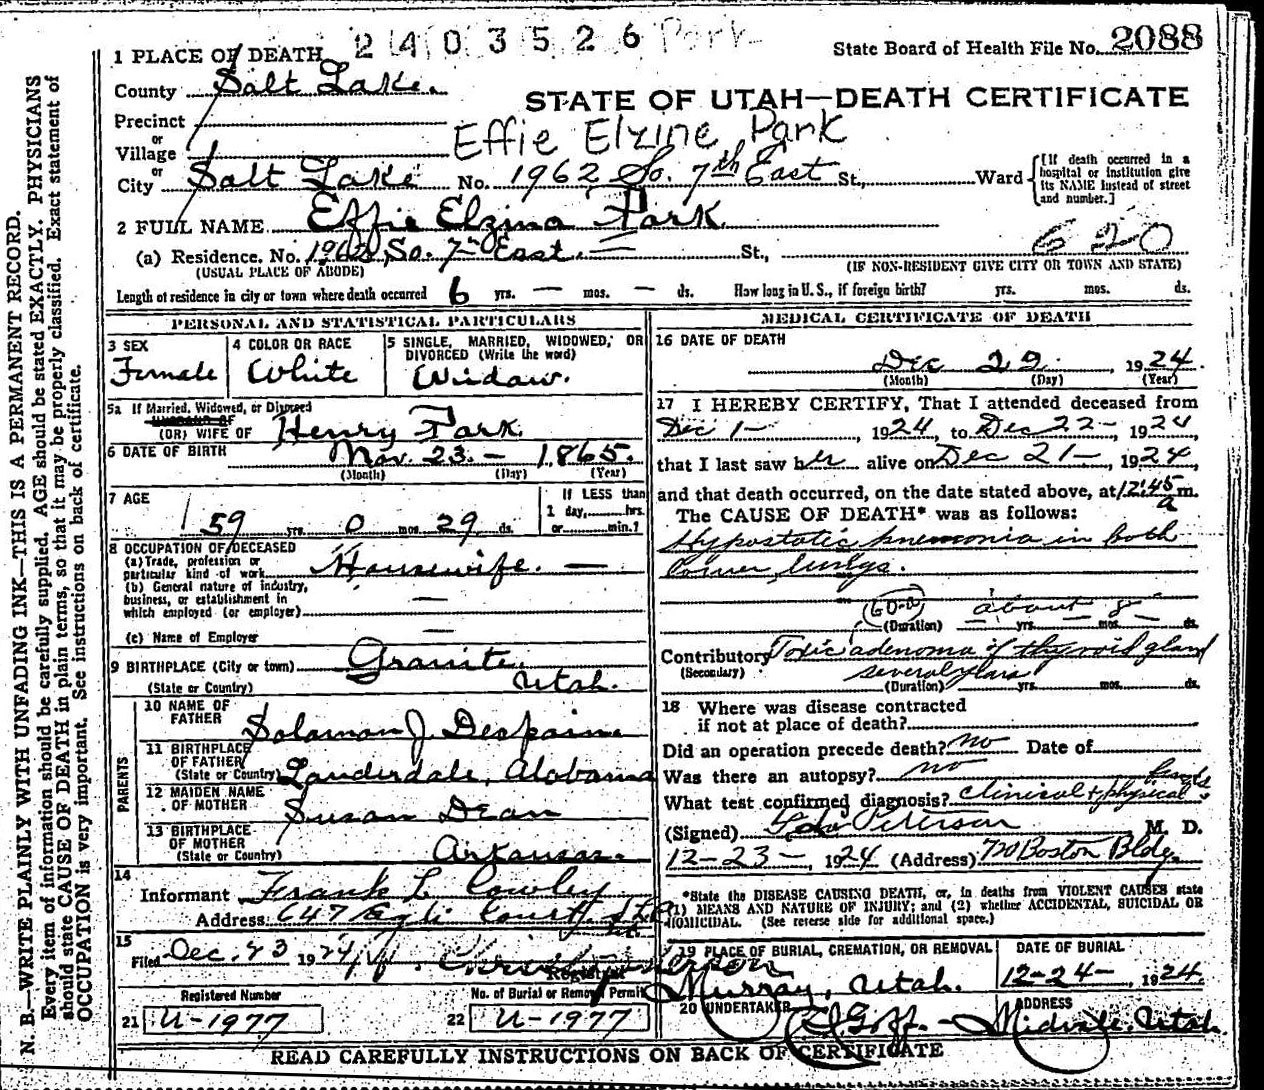 2403526 Park
1 PLACE OF DEATH
State Board of Health File No. 2088
County Salt Lake.
STATE OF UTAH—DEATH CERTIFICATE
Precinct
Effie Elzine Park
or
Village
or
City Salt Lake No. 1962 So. 7th East St., Ward
[If death occurred in a hospital or institution give its NAME instead of street and number.]
2 FULL NAME Effie Elzina Park
620
(a) Residence. No. 1962 So. 7th East. — St.,
(USUAL PLACE OF ABODE) (IF NON-RESIDENT GIVE CITY OR TOWN AND STATE)
Length of residence in city or town where death occurred 6 yrs. — mos. — ds. How long in U. S., if foreign birth? yrs. mos. ds.
PERSONAL AND STATISTICAL PARTICULARS
3 SEX
Female
4 COLOR OR RACE
White
5 SINGLE, MARRIED, WIDOWED, OR
DIVORCED (Write the word)
Widow.
5a If Married, Widowed, or Divorced
HUSBAND OF
(OR) WIFE OF Henry Park
6 DATE OF BIRTH Nov. 23. — 1865.
(Month) (Day) (Year)
7 AGE
59 yrs. 0 mos. 29 ds.
If LESS than
1 day, hrs.
or min.?
8 OCCUPATION OF DECEASED
(a) Trade, profession or
particular kind of work Housewife. —
(b) General nature of industry,
business, or establishment in
which employed (or employer) —
(c) Name of Employer —
9 BIRTHPLACE (City or town) Granite.
(State or Country) Utah.
PARENTS
10 NAME OF
FATHER Solomon J Despain
11 BIRTHPLACE
OF FATHER
(State or Country) Lauderdale, Alabama
12 MAIDEN NAME
OF MOTHER Susan Dean
13 BIRTHPLACE
OF MOTHER
(State or Country) Arkansas.
14
Informant Frank L Cowley
Address 647 Court S.L.C.
15
Filed Dec. 23 1924
Registrar
Registered Number
21 U-1977
No. of Burial or Removal Permit
22 U-1977
MEDICAL CERTIFICATE OF DEATH
16 DATE OF DEATH
Dec 22 1924
(Month) (Day) (Year)
17 I HEREBY CERTIFY, That I attended deceased from
Dec 1 — , 1924, to Dec 22 — , 1924
that I last saw her alive on Dec 21 — , 1924
and that death occurred, on the date stated above, at 12:45 a m.
The CAUSE OF DEATH* was as follows:
Hypostatic pnemonia in both
lower lungs.
about 8
(Duration) — yrs. — mos. ds.
Contributory Toxic adenoma of thyroid gland
(Secondary) several years
(Duration) yrs. mos. ds.
18 Where was disease contracted
if not at place of death?
Did an operation precede death? no Date of
Was there an autopsy? no
What test confirmed diagnosis? Clinical & physical
(Signed) Peterson M. D.
12-23 — , 1924 (Address) 720 Boston Bldg.
*State the DISEASE CAUSING DEATH, or, in deaths from VIOLENT CAUSES state
(1) MEANS AND NATURE OF INJURY; and (2) whether ACCIDENTAL, SUICIDAL OR
HOMICIDAL. (See reverse side for additional space.)
19 PLACE OF BURIAL, CREMATION, OR REMOVAL
Murray, Utah.
DATE OF BURIAL
12-24 — , 1924.
20 UNDERTAKER
Goff. —
ADDRESS
Midvale, Utah
READ CAREFULLY INSTRUCTIONS ON BACK OF CERTIFICATE
N. B.—WRITE PLAINLY WITH UNFADING INK—THIS IS A PERMANENT RECORD.
Every item of information should be carefully supplied. AGE should be stated EXACTLY. PHYSICIANS
should state CAUSE OF DEATH in plain terms, so that it may be properly classified. Exact statement of
OCCUPATION is very important. See instructions on back of certificate.